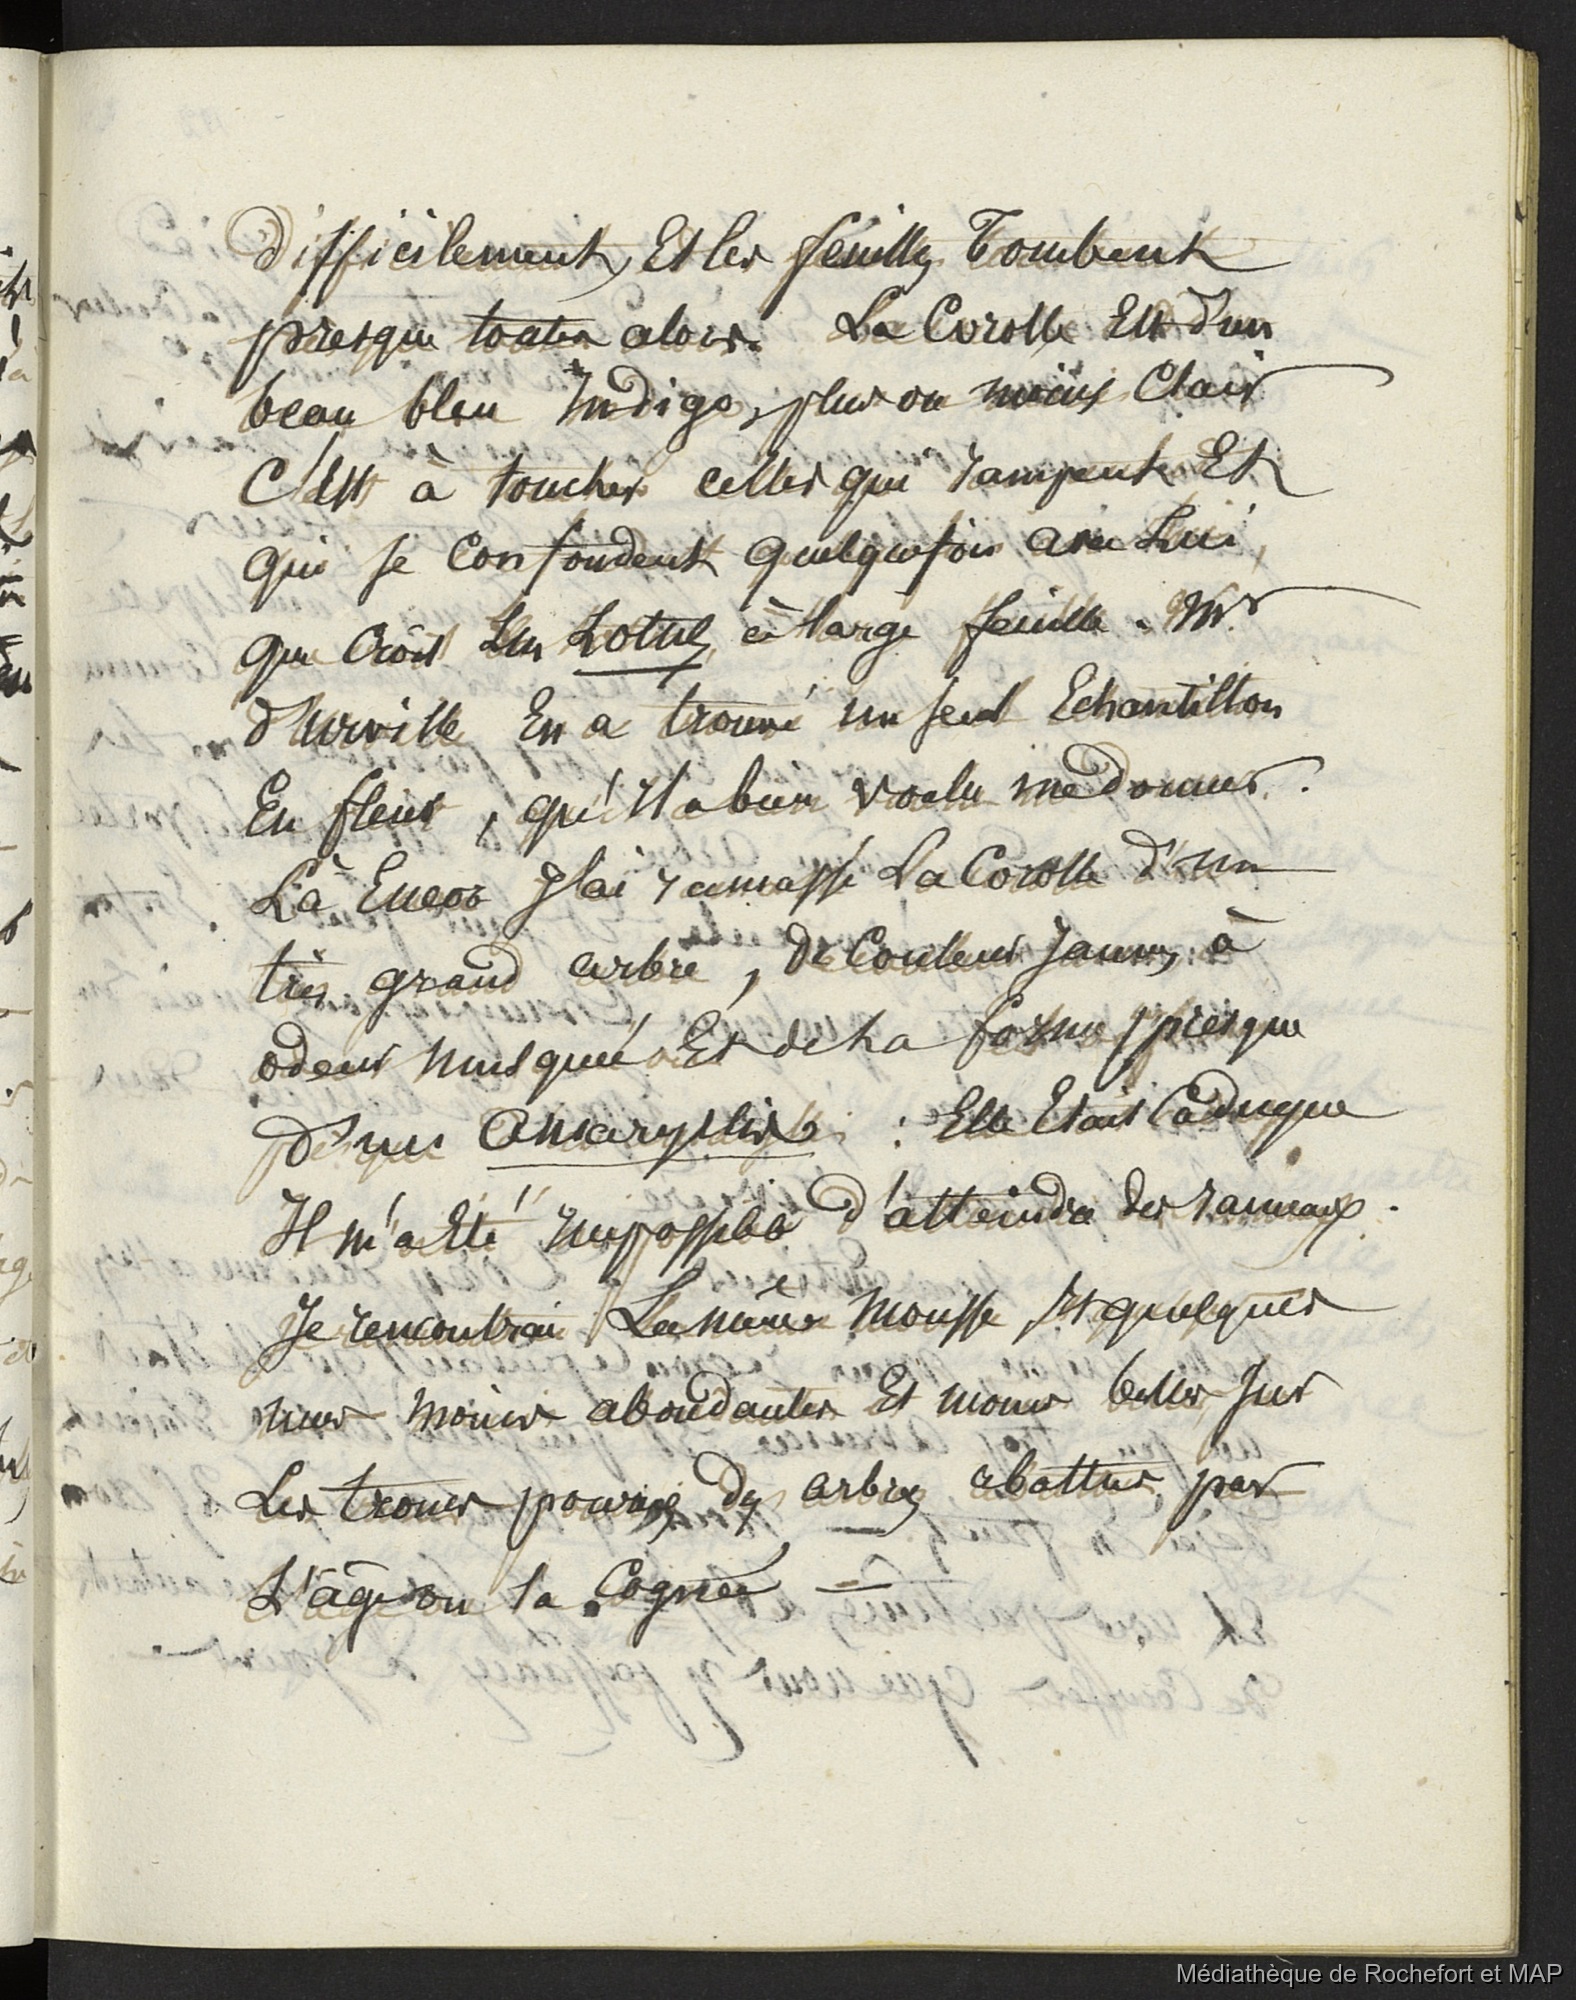 difficilement, Et les feuilles Tombent
presque toutes alors. La Corolle Est d'un
beau bleu Indigo, plus ou moins Clair
C'Est à toucher celles qui rampent Et
qui se Confondent quelquefois avec Lui,
que Croit Un Lotus, à large feuille. Mr
d'urville En a trouvé un seul Echantillon
En fleur, qu'Il a bien voulu me donner.
Là Encor J'ai ramassé La Corolle d'un
très grand arbre, De Couleur Jaune, à
odeur musquée Et de La forme presque
D'une Amaryllis : Elle Etait Caduque
Il m'a Eté impossible d'atteindre des rameaux.
Je rencontrai La même Mousse, Et quelques
unes moins abondantes Et moins belles sur
Les troncs pourris des arbres abattus par
L'âge ou la Cognée —
Médiathèque de Rochefort et MAP